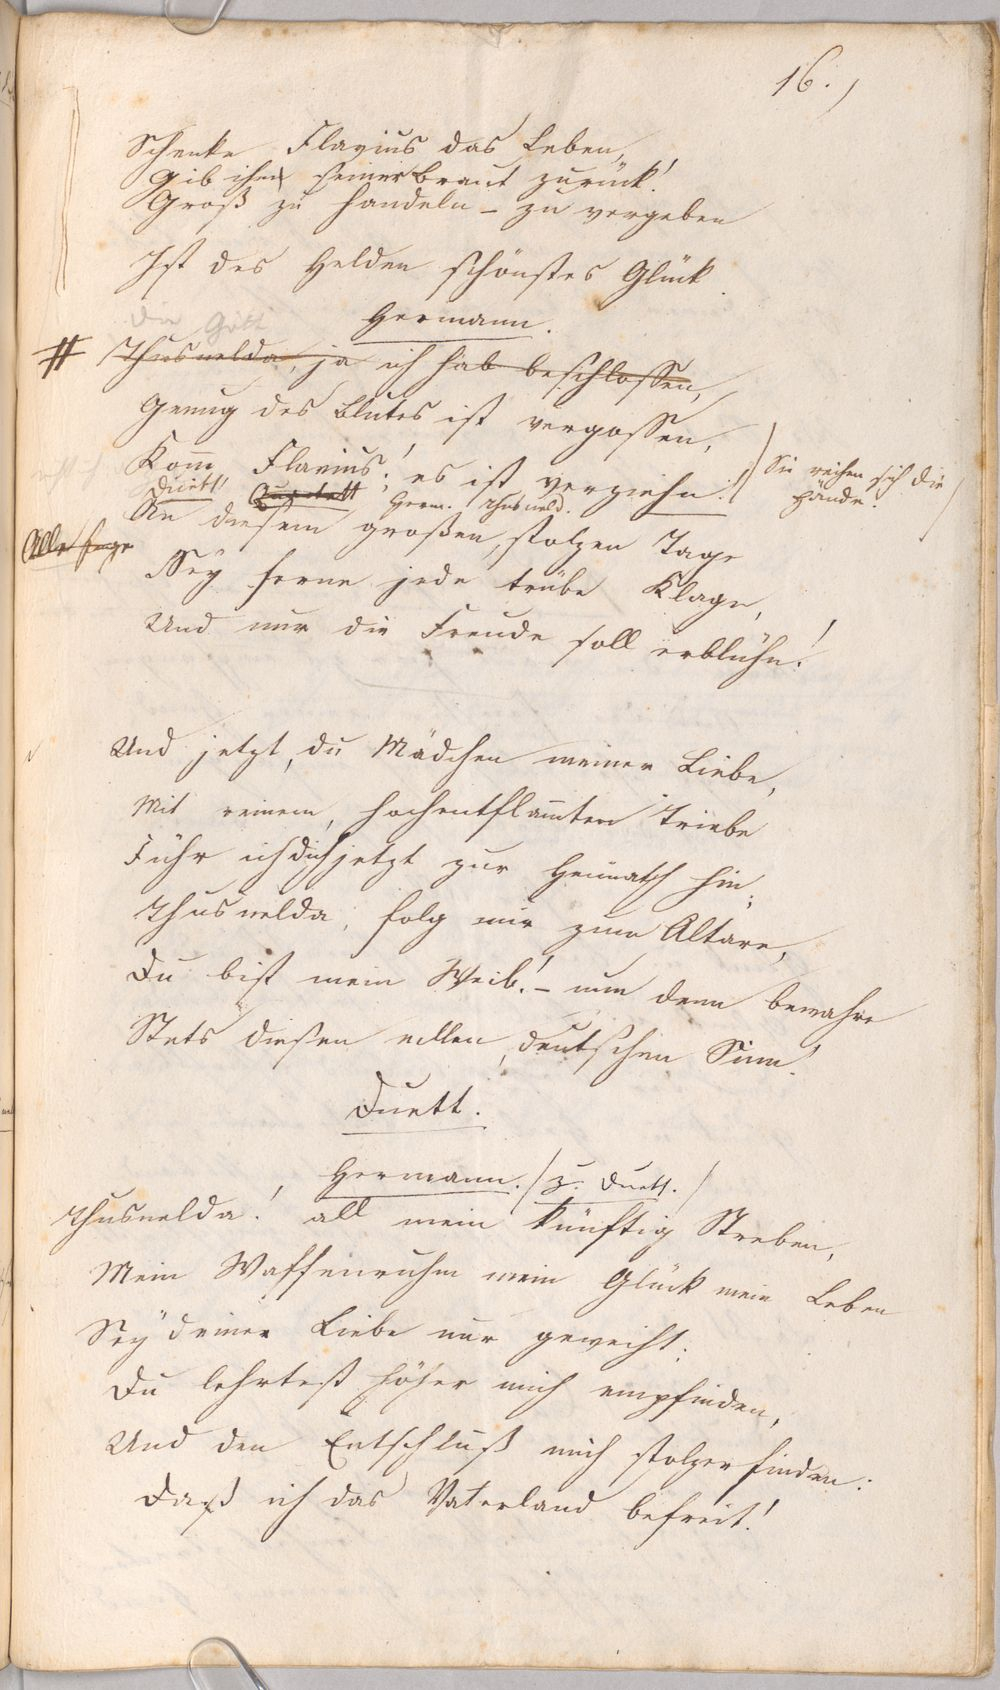 16.)
Schenke Flavius das Leben,
Gib ihm seiner Braut zurück!
Groß zu handeln – zu vergeben
Ist des Helden schönstes Glück
Hermann.
# Thusnelda, ja ich hab beschlossen,
Genug des Blutes ist vergossen,
Komm, Flavius! es ist verziehn!
(Sie reichen sich die Hände.)
Duett! Quartett Herm. Thusneld.
An diesem großen, stolzen Tage
Sey ferne jede trübe Klage,
Und nur die Freude soll erblühn!
Und jetzt, du Mädchen meiner Liebe,
Mit reinem, hochentflam̄ten Triebe
Führ ich dich jetzt zur Heimath hin;
Thusnelda, folg mir zum Altare,
Du bist mein Weib! – nun denn bewahre
Stets diesen edlen, deutschen Sinn!
Duett.
Hermann. (z. Duett.)
Thusnelda! all mein künftig Streben,
Mein Waffenruhm mein Glück mein Leben
Sey deiner Liebe nur geweiht;
Du lehrtest höher mich empfinden,
Und den Entschluß mich stolzer finden:
Daß ich das Vaterland befreit!